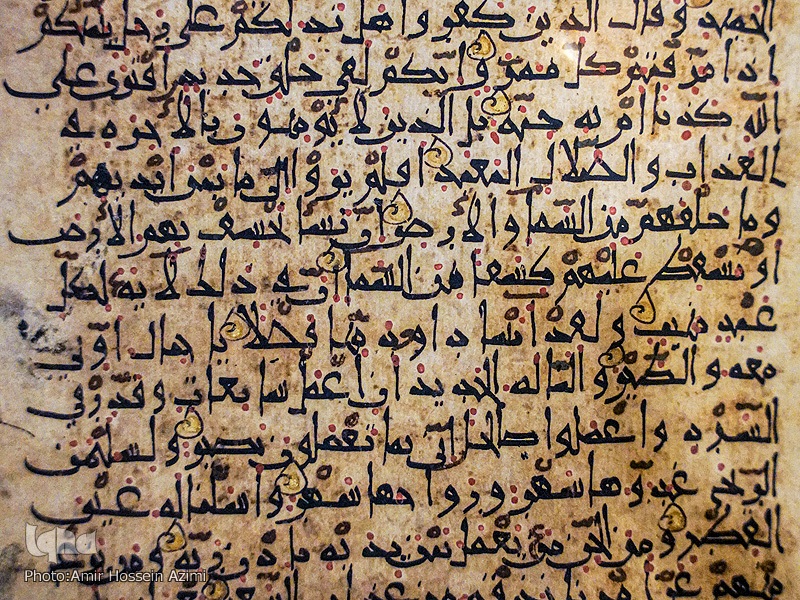 الحميد و قال الذين كفروا هل ندلكم على رجل ينبئكم
اذا مزقتم كل ممزق انكم لفي خلق جديد افترى على
الله كذبا ام به جنة بل الذين لا يؤمنون بالاخرة في
العذاب والضلال البعيد افلم يروا الى ما بين ايديهم
وما خلفهم من السما والارض ان نشا نخسف بهم الارض
او نسقط عليهم كسفا من السما ان في ذلك لاية لكل
عبد منيب ولقد اتينا داود منا فضلا يا جبال اوبي
معه والطير والنا له الحديد ان اعمل سابغات وقدر في
السرد واعملوا صالحا اني بما تعملون بصير ولسليمن
الريح غدوها شهر ورواحها شهر واسلنا له عين
القطر ومن الجن من يعمل بين يديه باذن ربه ومن يزغ
iqna
Photo:Amir Hossein Azimi